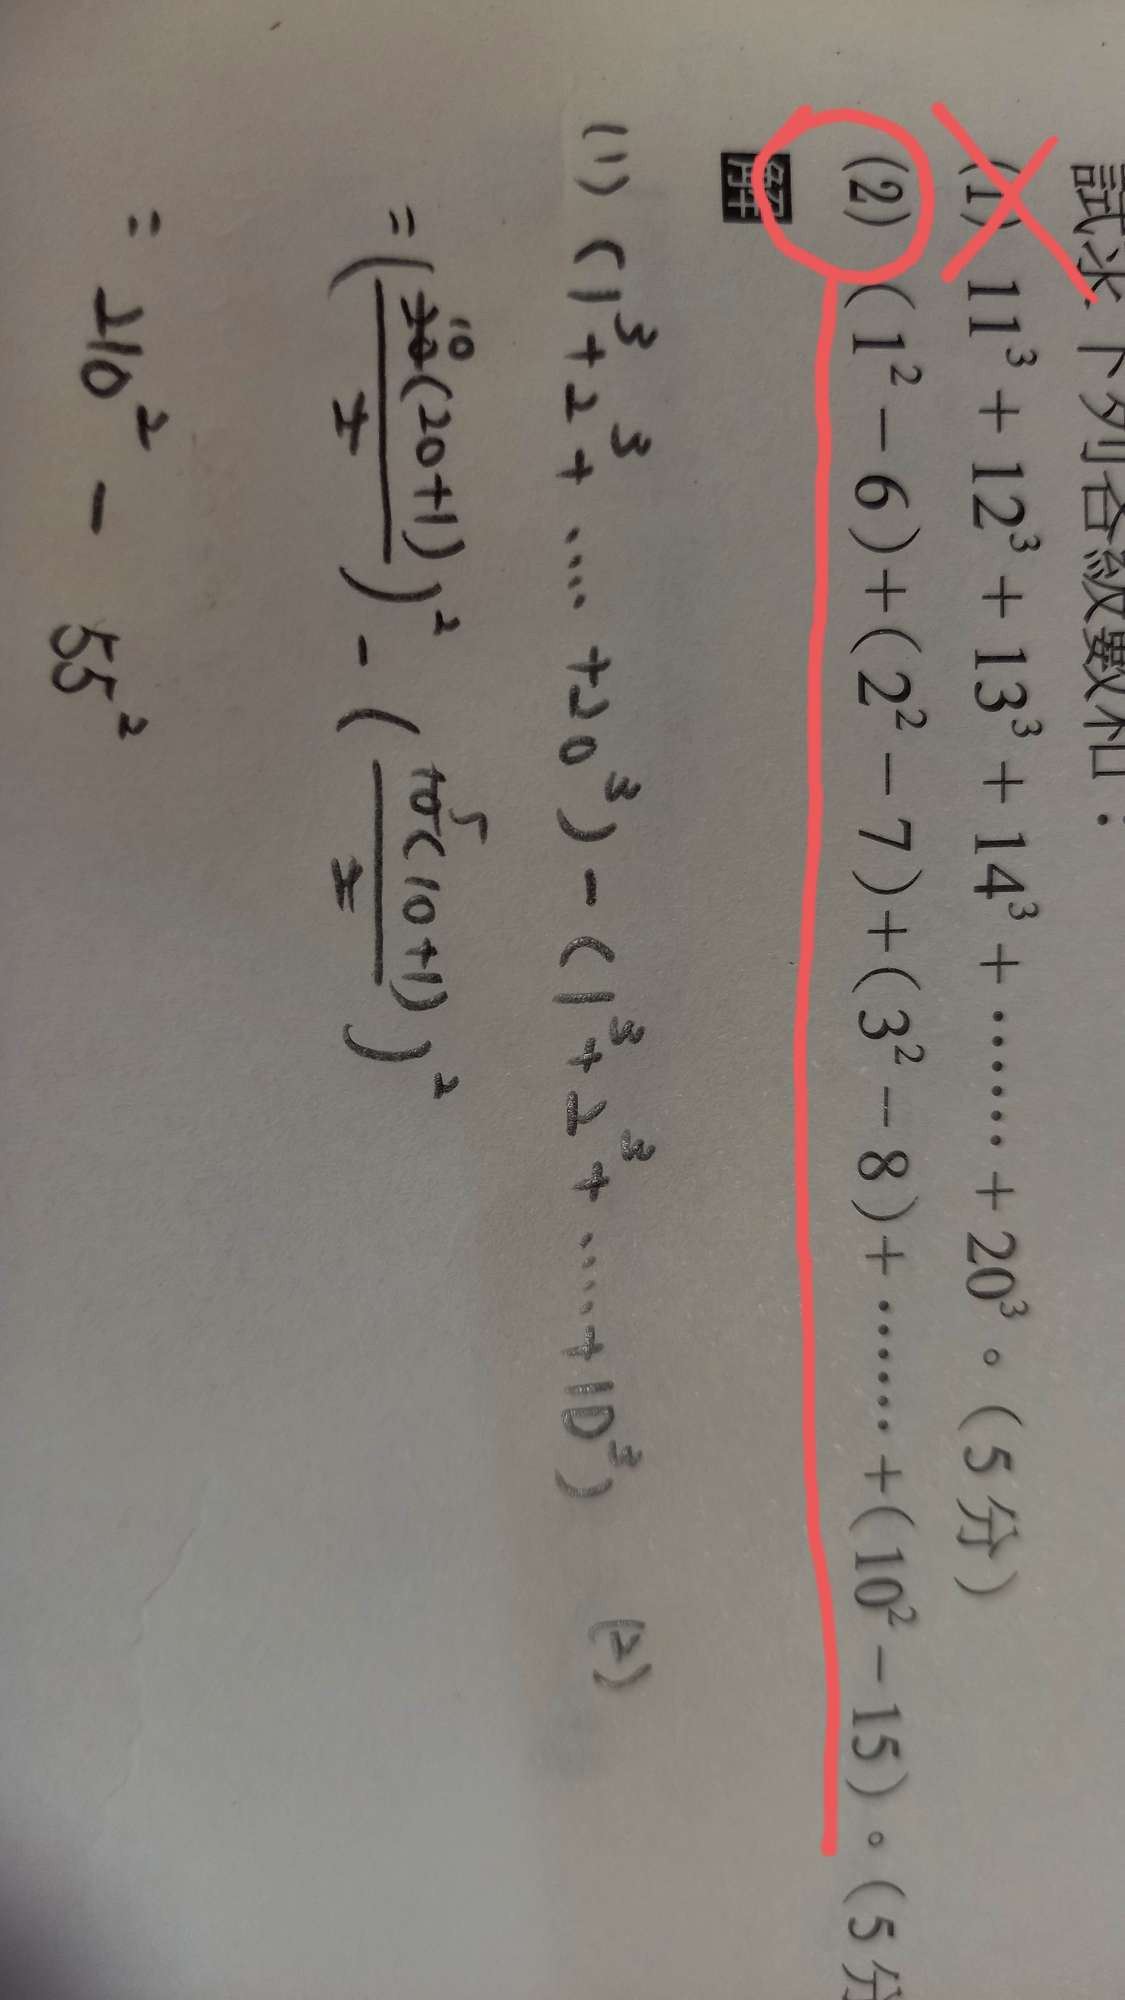 試求下列各級數和：
(1) 11³ + 12³ + 13³ + 14³ + …… + 20³。(5分)
(2) (1² − 6) + (2² − 7) + (3² − 8) + …… + (10² − 15)。(5分
解
(1) (1³ + 2³ + .... + 20³) - (1³ + 2³ + ..... + 10³) (2)
= (20 10(20+1) / 2)² - (10 5(10+1) / 2)²
= 210² - 55²